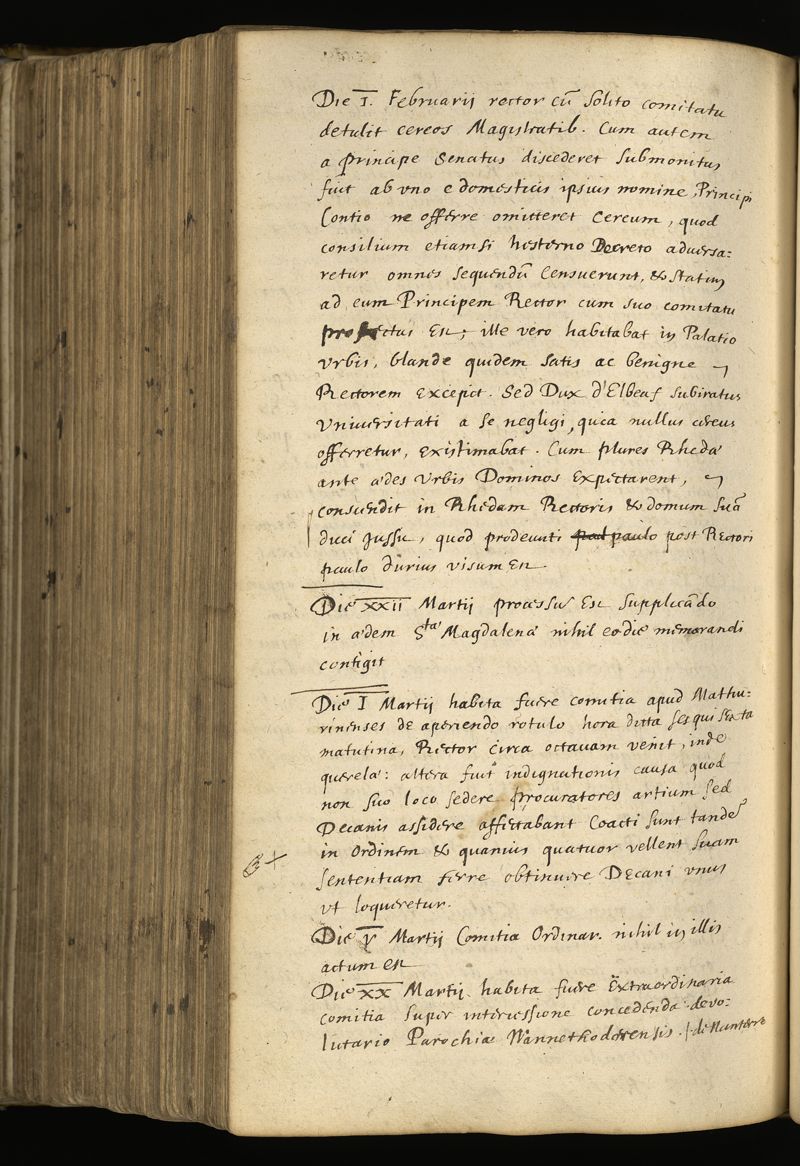 Die I. Februarij rector cū solito comitatu
detulit cereos Magistratib. Cum autem
a principe Senatus discederet submonitus
fuit ab uno e domesticis ipsius nomine, Principi
Contio ne offerre omitteret Cereum, quod
consilium etiamsi hesterno Decreto adversa:
retur omnes sequendū Censuerunt, & statim
ad eum Principem Rector cum suo comitatu
profectus est; ille vero habitabat in Palatio
Urbis, blande quidem satis ac benigne
Rectorem excepit. Sed Dux d'Elbeaf subiratus
Universitati a se negligi, quia nullus cereus
offerretur, existimabat. Cum plures Rheda
ante ædes Urbis Dominos expectarent,
conscendit in Rhedam Rectoris & domum suā
duci jussu, quod prodeunti paulo post Rectori
paulo durius visum est.
Die XXII Martij processū est supplicādo
in ædem Stæ Magdalenæ nihil eo die memorandi
contigit
Die I Martij habita fuere comitia apud Mathu:
rinenses de aperiendo rotulo hora dicta sesqui sexta
matutina, Rector circa octavam venit, inde
querela: altera fuit indignationis causa quod
non suo loco sedere procuratores artium sed
Decanis assidere affectabant Coacti sunt tandē
in Ordinem & quamvis quatuor vellent suam
sententiam ferre obtinuere Decani unus
ut loqueretur.
Die V Martij Comitia Ordinar. nihil in illis
actum est
Die XX Martij habita fuere Extraordinaria
comitia super intercessione concedenda devo:
lutario Parochiæ Nannethodorensis. de Nanterre